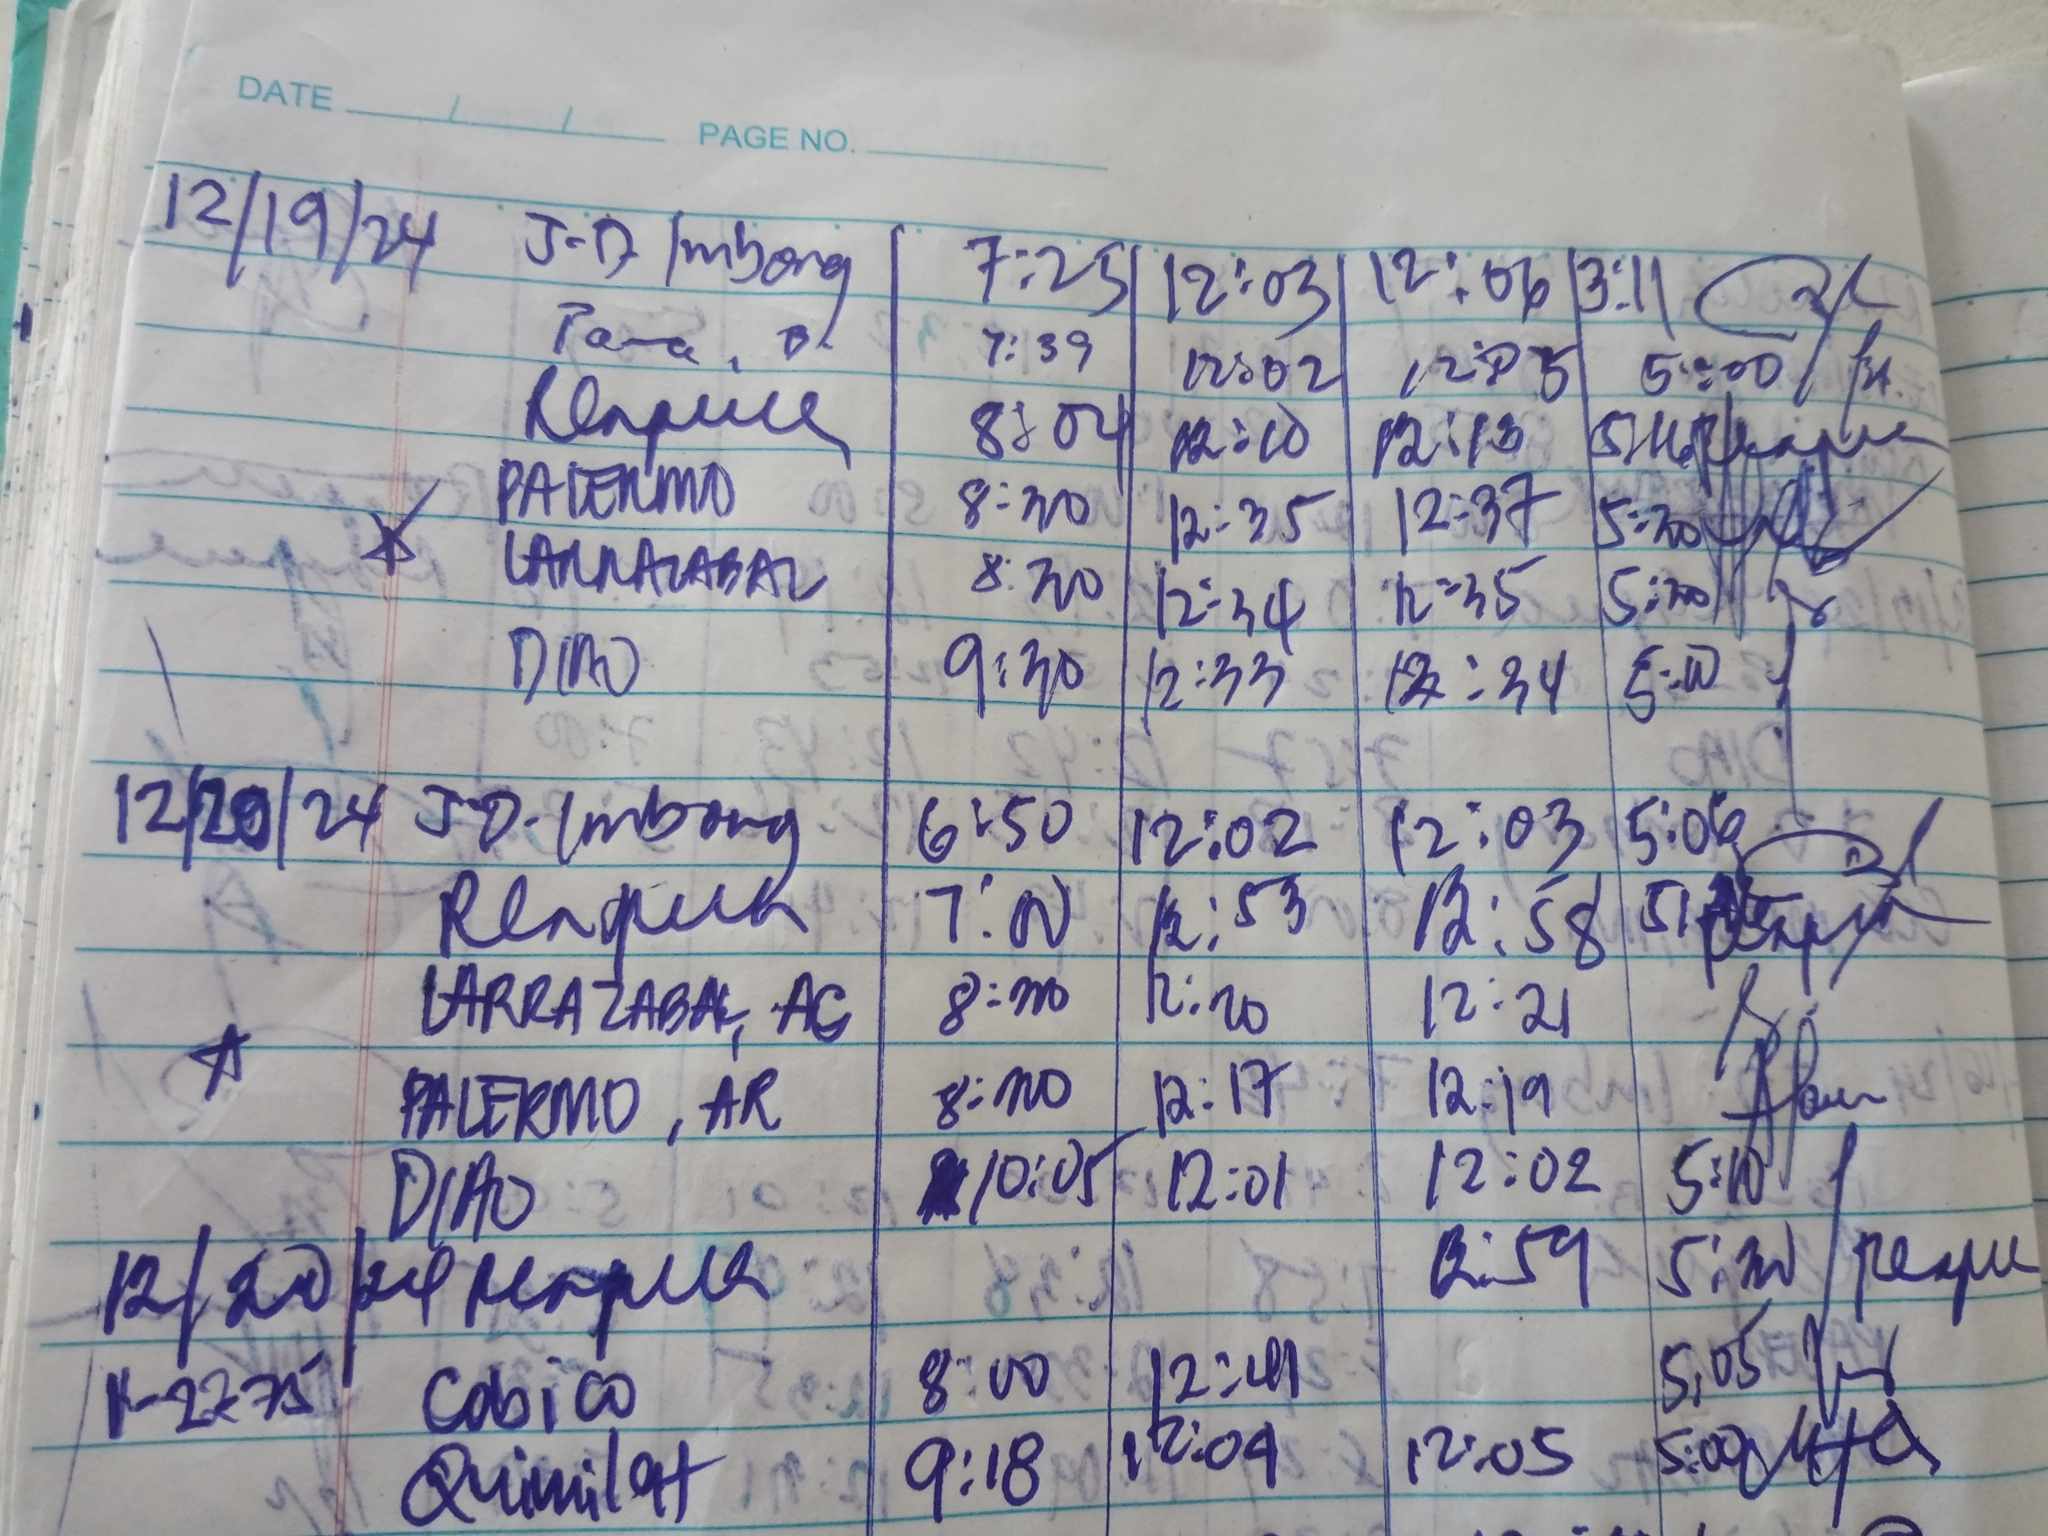 DATE / / PAGE NO.
12/19/24 J-D Imbong 7:25 12:03 12:06 3:11
7:39 12:02 12:03 5:00
8:04 12:10 12:13
PALERMO 8:30 12:35 12:37 5:30
LARRAZABAL 8:30 12:34 12:35 5:30
DIAO 9:30 12:33 12:34 5:10
12/20/24 J-D. Imbong 6:50 12:02 12:03 5:06
7:00 12:53 12:58
LARRAZABAL, AG 8:30 12:20 12:21
PALERMO, AR 8:30 12:17 12:19
DIAO 10:05 12:01 12:02 5:10
12/20/24 12:59 5:30
Cobico 8:00 12:41 5:05
Quimilat 9:18 12:04 12:05 5:00